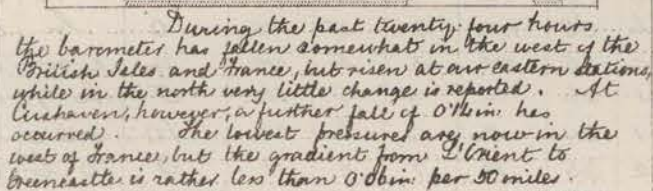 During the past twenty four hours
the barometer has fallen somewhat in the west of the
British Isles and France, but risen at our eastern stations,
while in the north very little change is reported. At
Cuxhaven, however, a further fall of 0.14in. has
occurred. The lowest pressures are now in the
west of France, but the gradient from L'Orient to
Greencastle is rather less than 0.06in. per 50 miles.